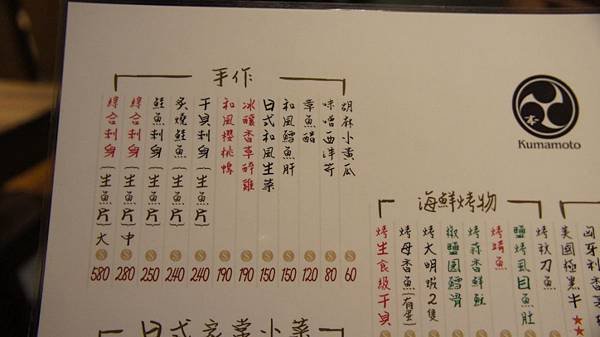 手作
綜合刺身(生魚片)大
綜合刺身(生魚片)中
鮭魚刺身(生魚片)
炙燒鮭魚(生魚片)
干貝刺身(生魚片)
和風櫻桃鴨
冰釀香草醉雞
日式和風生菜
和風鱈魚肝
章魚醋
味噌西洋芹
胡麻小黃瓜
580 280 250 240 240 190 190 150 150 120 80 60
Kumamoto
海鮮烤物
烤生食級干貝
烤母香魚(有蛋)
烤大明蝦2隻
椒鹽圓鱈滑
烤蒜香鮮魷
烤晴魚
鹽烤虱目魚肚
烤秋刀魚
美國極黑牛
匈牙利香
日式家常小菜